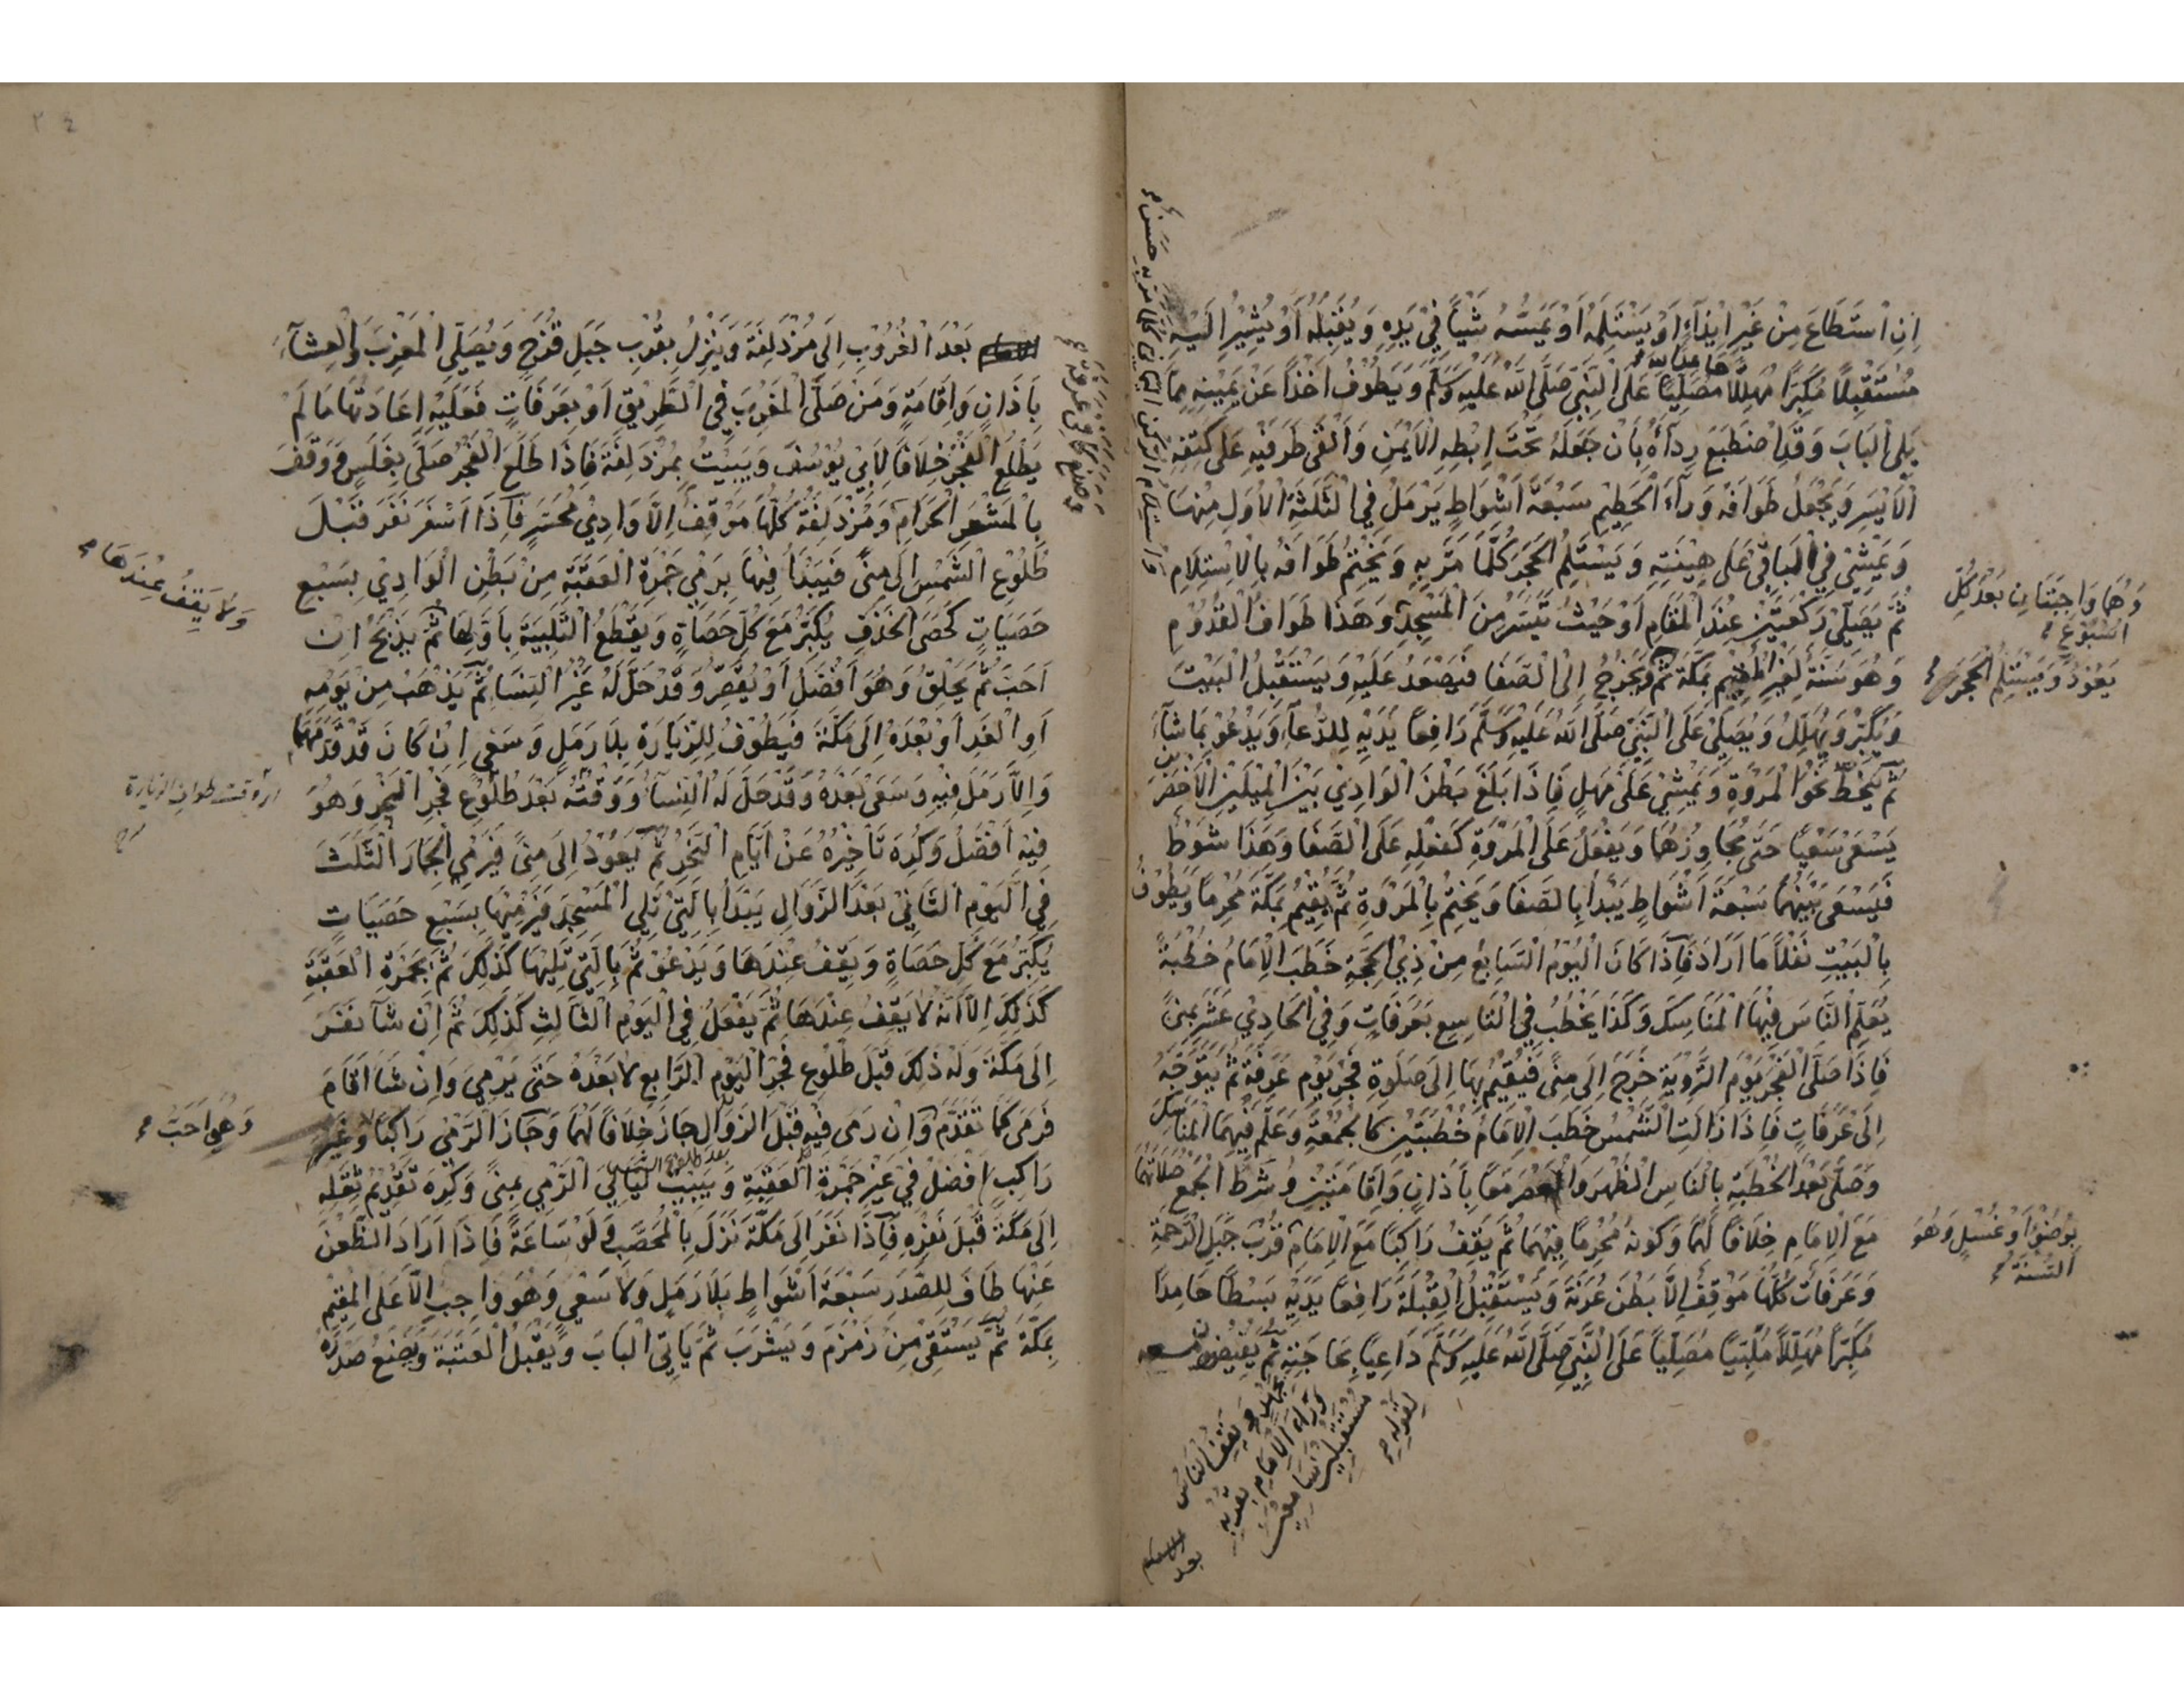 اِنِ اسْتَطَاعَ مِنْ غَيْرِ اِيْذَآءٍ اَوْ يَسْتَلِمُهُ اَوْ يَمَسُّهُ شَيْأً فِيْ يَدِهِ وَيُقَبِّلُهُ اَوْ يُشِيْرُ اِلَيْهِ
مُسْتَقْبِلًا مُكَبِّرًا مُهَلِّلًا مُصَلِّيًا عَلَى النَّبِيِّ صَلَّى اللّٰهُ عَلَيْهِ وَسَلَّمَ وَيَطُوْفُ اٰخِذًا عَنْ يَمِيْنِهِ مِمَّا
يَلِي الْبَابَ وَقَدِ اضْطَبَعَ رِدَآءَهُ بِاَنْ جَعَلَهُ تَحْتَ اِبْطِهِ الْاَيْمَنِ وَاَلْقٰى طَرَفَيْهِ عَلٰى كَتِفِهِ
الْاَيْسَرِ وَيَجْعَلُ طَوَافَهُ وَرَآءَ الْحَطِيْمِ سَبْعَةَ اَشْوَاطٍ يَرْمُلُ فِي الثَّلٰثَةِ الْاُوَلِ مِنْهَا
وَيَمْشِيْ فِي الْبَاقِيْ عَلٰى هِيْنَتِهِ وَيَسْتَلِمُ الْحَجَرَ كُلَّمَا مَرَّ بِهِ وَيَخْتِمُ طَوَافَهُ بِالْاِسْتِلَامِ
وَاسْتِلَامُ الرُّكْنِ الْيَمَانِيْ كُلَّمَا مَرَّ بِهِ حَسَنٌ
ثُمَّ يُصَلِّيْ رَكْعَتَيْنِ عِنْدَ الْمَقَامِ اَوْ حَيْثُ تَيَسَّرَ مِنَ الْمَسْجِدِ وَهٰذَا طَوَافُ الْقُدُوْمِ
وَهُمَا وَاجِبَتَانِ بَعْدَ كُلِّ
اُسْبُوْعٍ
وَهُوَ سُنَّةٌ لِغَيْرِ الْمُقِيْمِ بِمَكَّةَ ثُمَّ وَيَخْرُجُ اِلَى الصَّفَا فَيَصْعَدُ عَلَيْهِ وَيَسْتَقْبِلُ الْبَيْتَ
يَعُوْدُ وَيَسْتَلِمُ الْحَجَرَ
وَيُكَبِّرُ وَيُهَلِّلُ وَيُصَلِّيْ عَلَى النَّبِيِّ صَلَّى اللّٰهُ عَلَيْهِ وَسَلَّمَ رَافِعًا يَدَيْهِ لِلدُّعَآءِ وَيَدْعُوْ بِمَا شَآءَ
ثُمَّ يَنْحَطُّ نَحْوَ الْمَرْوَةِ وَيَمْشِيْ عَلٰى مَهَلٍ فَاِذَا بَلَغَ بَطْنَ الْوَادِيْ بَيْنَ الْمِيْلَيْنِ الْاَخْضَرَيْنِ
يَسْعٰى سَعْيًا حَتّٰى يُجَاوِزَهُمَا وَيَفْعَلُ عَلَى الْمَرْوَةِ كَفِعْلِهِ عَلَى الصَّفَا وَهٰذَا شَوْطٌ
فَيَسْعٰى بَيْنَهُمَا سَبْعَةَ اَشْوَاطٍ يَبْدَأُ بِالصَّفَا وَيَخْتِمُ بِالْمَرْوَةِ ثُمَّ يُقِيْمُ بِمَكَّةَ مُحْرِمًا وَيَطُوْفُ
بِالْبَيْتِ نَفْلًا مَا اَرَادَ فَاِذَا كَانَ الْيَوْمُ السَّابِعُ مِنْ ذِي الْحِجَّةِ خَطَبَ الْاِمَامُ خُطْبَةً
يُعَلِّمُ النَّاسَ فِيْهَا الْمَنَاسِكَ وَكَذَا يَخْطُبُ فِي التَّاسِعِ بِعَرَفَاتٍ وَفِي الْحَادِيْ عَشَرَ بِمِنًى
فَاِذَا صَلَّى الْفَجْرَ يَوْمَ التَّرْوِيَةِ خَرَجَ اِلٰى مِنًى فَيُقِيْمُ بِهَا اِلٰى صَلٰوةِ فَجْرِ يَوْمِ عَرَفَةَ ثُمَّ يَتَوَجَّهُ
اِلٰى عَرَفَاتٍ فَاِذَا زَالَتِ الشَّمْسُ خَطَبَ الْاِمَامُ خُطْبَتَيْنِ كَالْجُمُعَةِ وَعَلَّمَ فِيْهِمَا الْمَنَاسِكَ
وَصَلّٰى بَعْدَ الْخُطْبَةِ بِالنَّاسِ الظُّهْرَ وَالْعَصْرَ مَعًا بِاَذَانٍ وَاِقَامَتَيْنِ وَشَرْطُ الْجَمْعِ صَلَاتُهُمَا
مَعَ الْاِمَامِ خِلَافًا لَهُمَا وَكَوْنُهُ مُحْرِمًا فِيْهِمَا ثُمَّ يَقِفُ رَاكِبًا مَعَ الْاِمَامِ قُرْبَ جَبَلِ الرَّحْمَةِ
بِوُضُوْءٍ اَوْ غُسْلٍ وَهُوَ
السُّنَّةُ
وَعَرَفَاتٌ كُلُّهَا مَوْقِفٌ اِلَّا بَطْنَ عُرَنَةَ وَيَسْتَقْبِلُ الْقِبْلَةَ رَافِعًا يَدَيْهِ بَسْطًا حَامِدًا
مُكَبِّرًا مُهَلِّلًا مُلَبِّيًا مُصَلِّيًا عَلَى النَّبِيِّ صَلَّى اللّٰهُ عَلَيْهِ وَسَلَّمَ دَاعِيًا بِحَاجَتِهِ ثُمَّ يُفِيْضُ
بِجَهْدٍ وَيَقِفُ النَّاسُ
وَرَآءَ الْاِمَامِ بِقُرْبِهِ
مُسْتَقْبِلِيْنَ سَامِعِيْنَ
لِقَوْلِهِ
بعد
بَعْدَ الْغُرُوْبِ اِلٰى مُزْدَلِفَةَ وَيَنْزِلُ بِقُرْبِ جَبَلِ قُزَحٍ وَيُصَلِّي الْمَغْرِبَ وَالْعِشَآءَ
بِاَذَانٍ وَاِقَامَةٍ وَمَنْ صَلَّى الْمَغْرِبَ فِي الطَّرِيْقِ اَوْ بِعَرَفَاتٍ فَعَلَيْهِ اِعَادَتُهَا مَا لَمْ
يَطْلُعِ الْفَجْرُ خِلَافًا لِاَبِيْ يُوْسُفَ وَيَبِيْتُ بِمُزْدَلِفَةَ فَاِذَا طَلَعَ الْفَجْرُ صَلّٰى بِغَلَسٍ وَوَقَفَ
بِالْمَشْعَرِ الْحَرَامِ وَمُزْدَلِفَةُ كُلُّهَا مَوْقِفٌ اِلَّا وَادِيْ مُحَسِّرٍ فَاِذَا اَسْفَرَ نَفَرَ قَبْلَ
وَصَنَعَ كَمَا فِيْ عَرَفَةَ
طُلُوْعِ الشَّمْسِ اِلٰى مِنًى فَيَبْدَأُ فِيْهَا بِرَمْيِ جَمْرَةِ الْعَقَبَةِ مِنْ بَطْنِ الْوَادِيْ بِسَبْعِ
حَصَيَاتٍ كَحَصَى الْخَذْفِ يُكَبِّرُ مَعَ كُلِّ حَصَاةٍ وَيَقْطَعُ التَّلْبِيَةَ بِاَوَّلِهَا ثُمَّ يَذْبَحُ اِنْ
وَلَا يَقِفُ عِنْدَهَا
اَحَبَّ ثُمَّ يَحْلِقُ وَهُوَ اَفْضَلُ اَوْ يُقَصِّرُ وَقَدْ حَلَّ لَهُ غَيْرُ النِّسَآءِ ثُمَّ يَذْهَبُ مِنْ يَوْمِهِ
اَوِ الْغَدِ اَوْ بَعْدَهُ اِلٰى مَكَّةَ فَيَطُوْفُ لِلزِّيَارَةِ بِلَا رَمَلٍ وَسَعْيٍ اِنْ كَانَ قَدْ قَدَّمَهُمَا
وَاِلَّا رَمَلَ فِيْهِ وَسَعٰى بَعْدَهُ وَقَدْ حَلَّ لَهُ النِّسَآءُ وَوَقْتُهُ بَعْدَ طُلُوْعِ فَجْرِ النَّحْرِ وَهُوَ
وقت طواف الزيارة
فِيْهِ اَفْضَلُ وَكُرِهَ تَأْخِيْرُهُ عَنْ اَيَّامِ النَّحْرِ ثُمَّ يَعُوْدُ اِلٰى مِنًى فَيَرْمِي الْجِمَارَ الثَّلٰثَ
فِي الْيَوْمِ الثَّانِيْ بَعْدَ الزَّوَالِ يَبْدَأُ بِالَّتِيْ تَلِي الْمَسْجِدَ فَيَرْمِيْهَا بِسَبْعِ حَصَيَاتٍ
يُكَبِّرُ مَعَ كُلِّ حَصَاةٍ وَيَقِفُ عِنْدَهَا وَيَدْعُوْ ثُمَّ بِالَّتِيْ تَلِيْهَا كَذٰلِكَ ثُمَّ بِجَمْرَةِ الْعَقَبَةِ
كَذٰلِكَ اِلَّا اَنَّهُ لَا يَقِفُ عِنْدَهَا ثُمَّ يَفْعَلُ فِي الْيَوْمِ الثَّالِثِ كَذٰلِكَ ثُمَّ اِنْ شَآءَ نَفَرَ
اِلٰى مَكَّةَ وَلَهُ ذٰلِكَ قَبْلَ طُلُوْعِ فَجْرِ الْيَوْمِ الرَّابِعِ لَا بَعْدَهُ حَتّٰى يَرْمِيَ وَاِنْ شَآءَ اَقَامَ
فَرَمٰى كَمَا تَقَدَّمَ وَاِنْ رَمٰى فِيْهِ قَبْلَ الزَّوَالِ جَازَ خِلَافًا لَهُمَا وَجَازَ الرَّمْيُ رَاكِبًا وَغَيْرَ
وَهِيَ اَحَبُّ
بعد طلوع الشمس
رَاكِبٍ اَفْضَلُ فِيْ غَيْرِ جَمْرَةِ الْعَقَبَةِ وَيَبِيْتُ لَيَالِيَ الرَّمْيِ بِمِنًى وَكُرِهَ تَقْدِيْمُ ثَقَلِهِ
اِلٰى مَكَّةَ قَبْلَ نَفْرِهِ فَاِذَا نَفَرَ اِلٰى مَكَّةَ نَزَلَ بِالْمُحَصَّبِ وَلَوْ سَاعَةً فَاِذَا اَرَادَ الظَّعْنَ
عَنْهَا طَافَ لِلصَّدَرِ سَبْعَةَ اَشْوَاطٍ بِلَا رَمَلٍ وَلَا سَعْيٍ وَهُوَ وَاجِبٌ اِلَّا عَلَى الْمُقِيْمِ
بِمَكَّةَ ثُمَّ يَسْتَقِيْ مِنْ زَمْزَمَ وَيَشْرَبُ ثُمَّ يَأْتِي الْبَابَ وَيُقَبِّلُ الْعَتَبَةَ وَيَضَعُ صَدْرَهُ